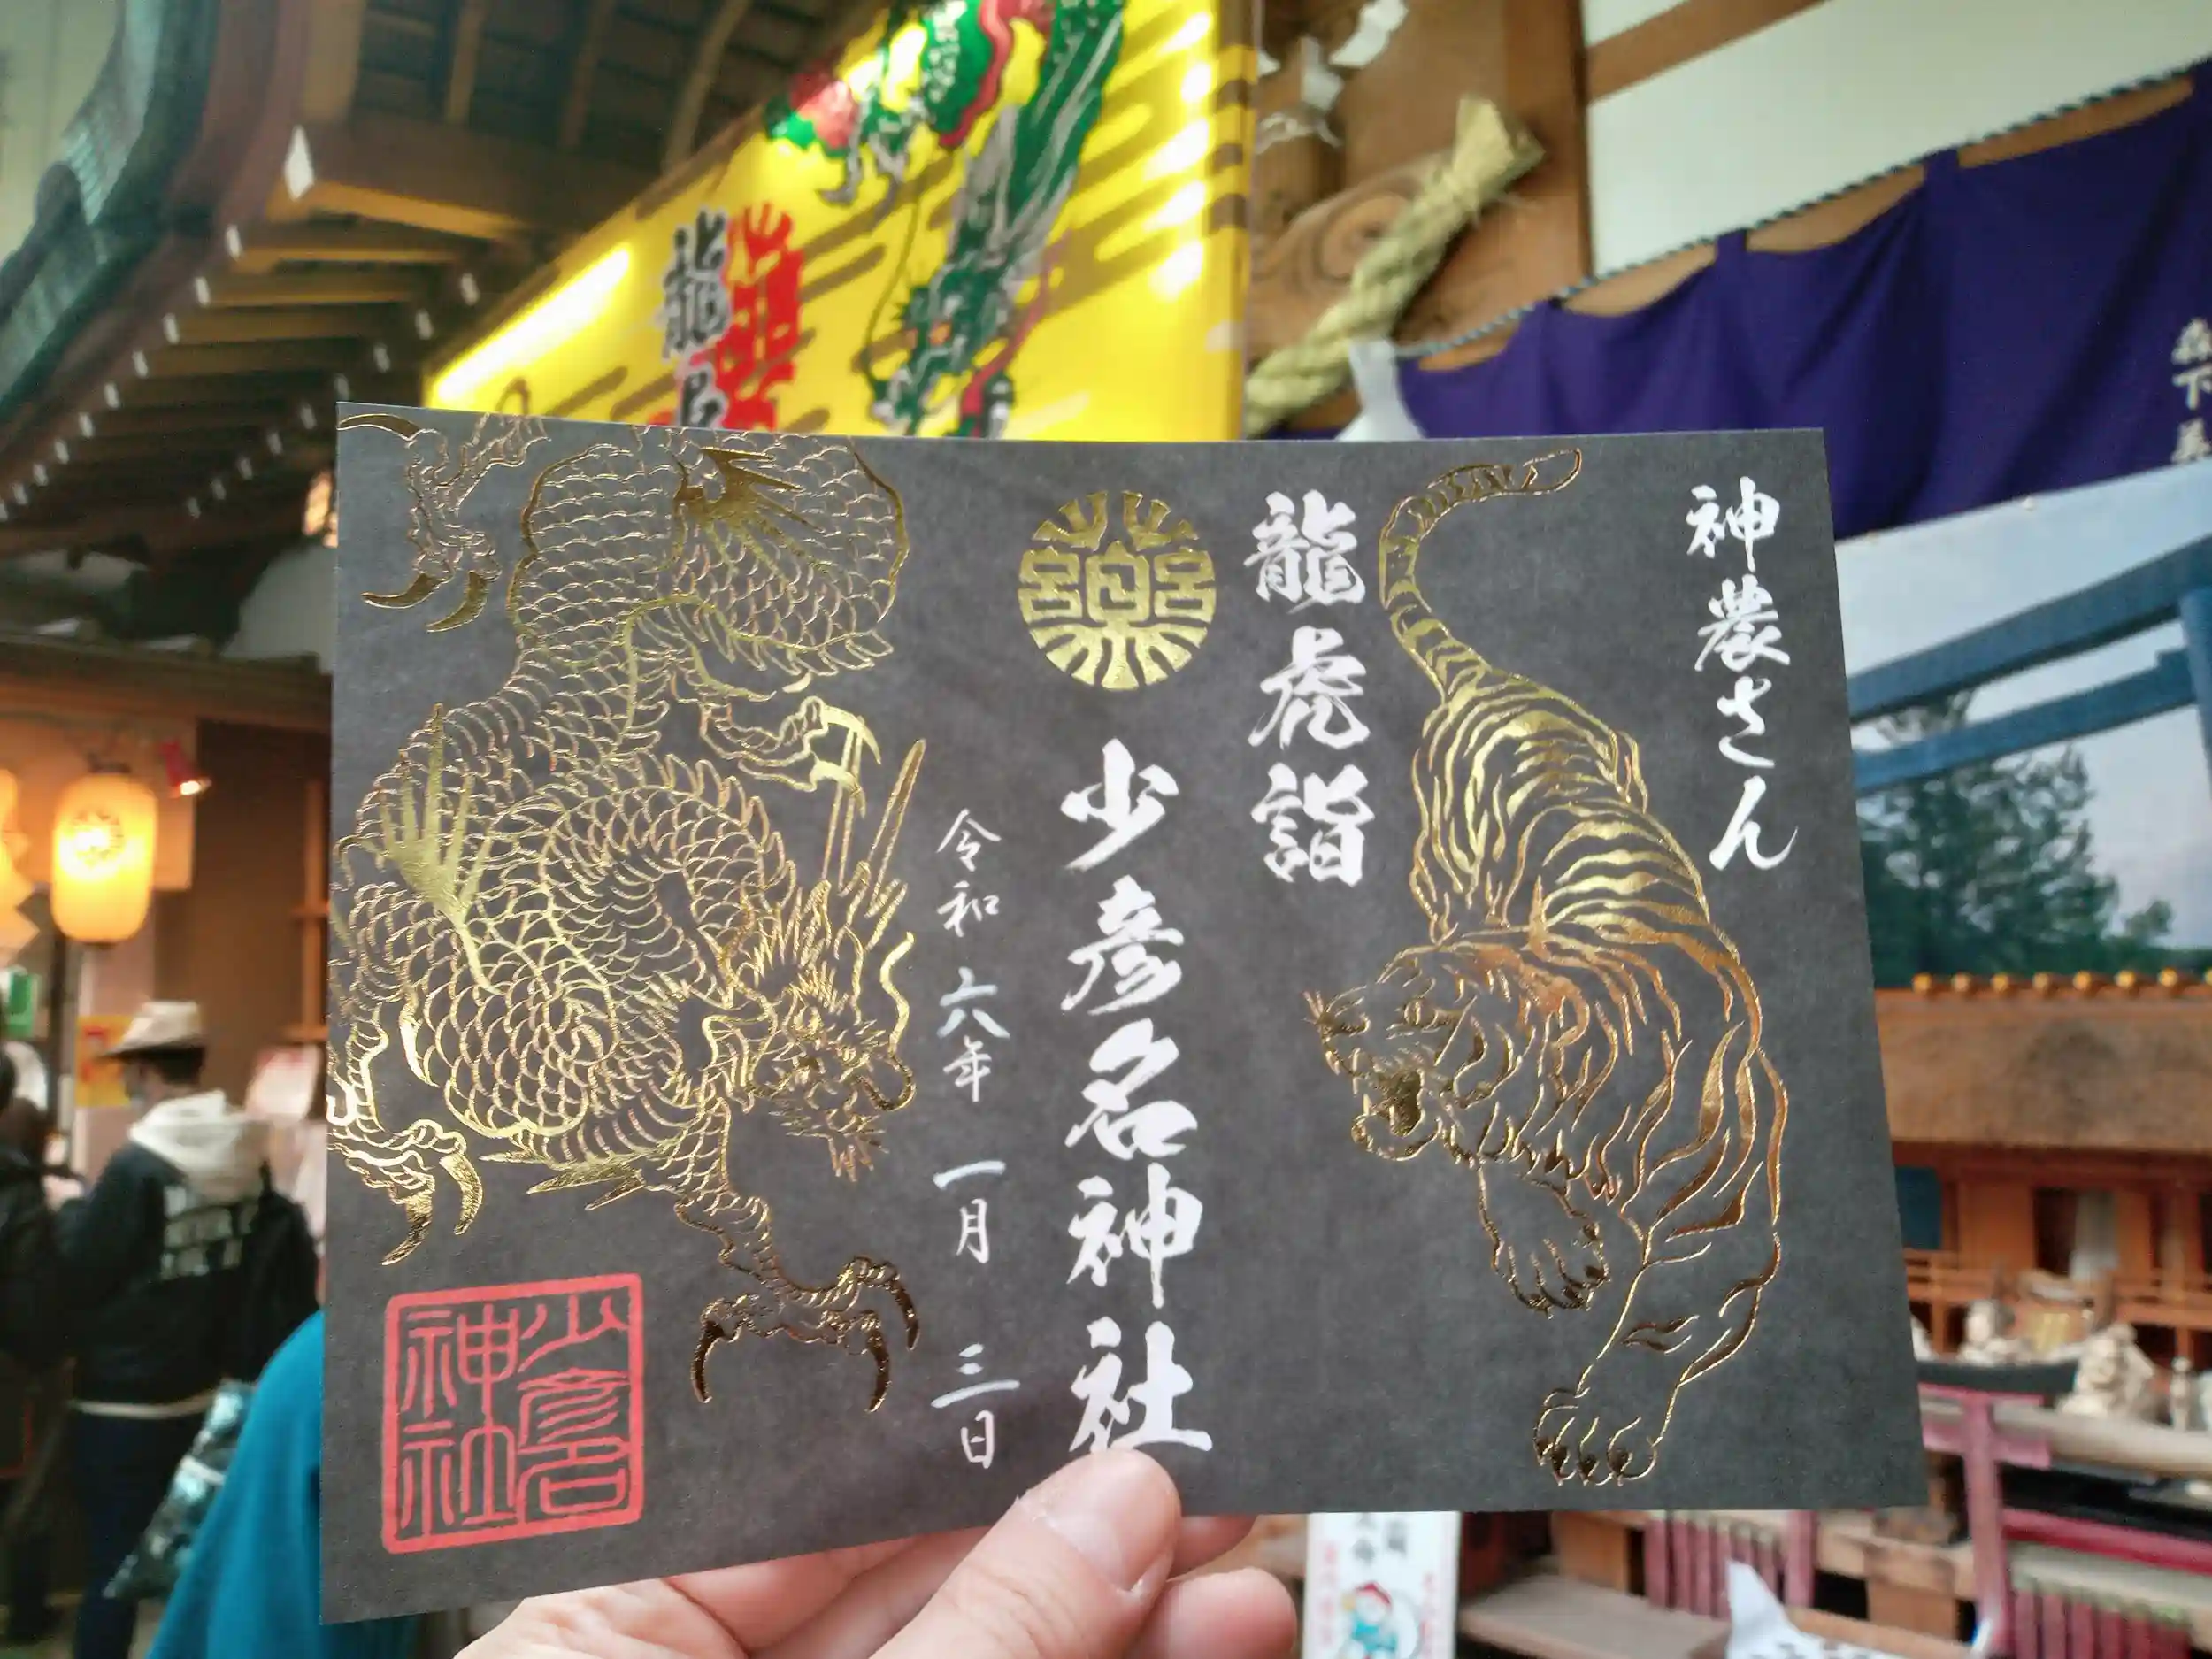 神農さん
龍虎詣
少彦名神社
令和六年 一月 三日
少彦名
神社
龍
森下